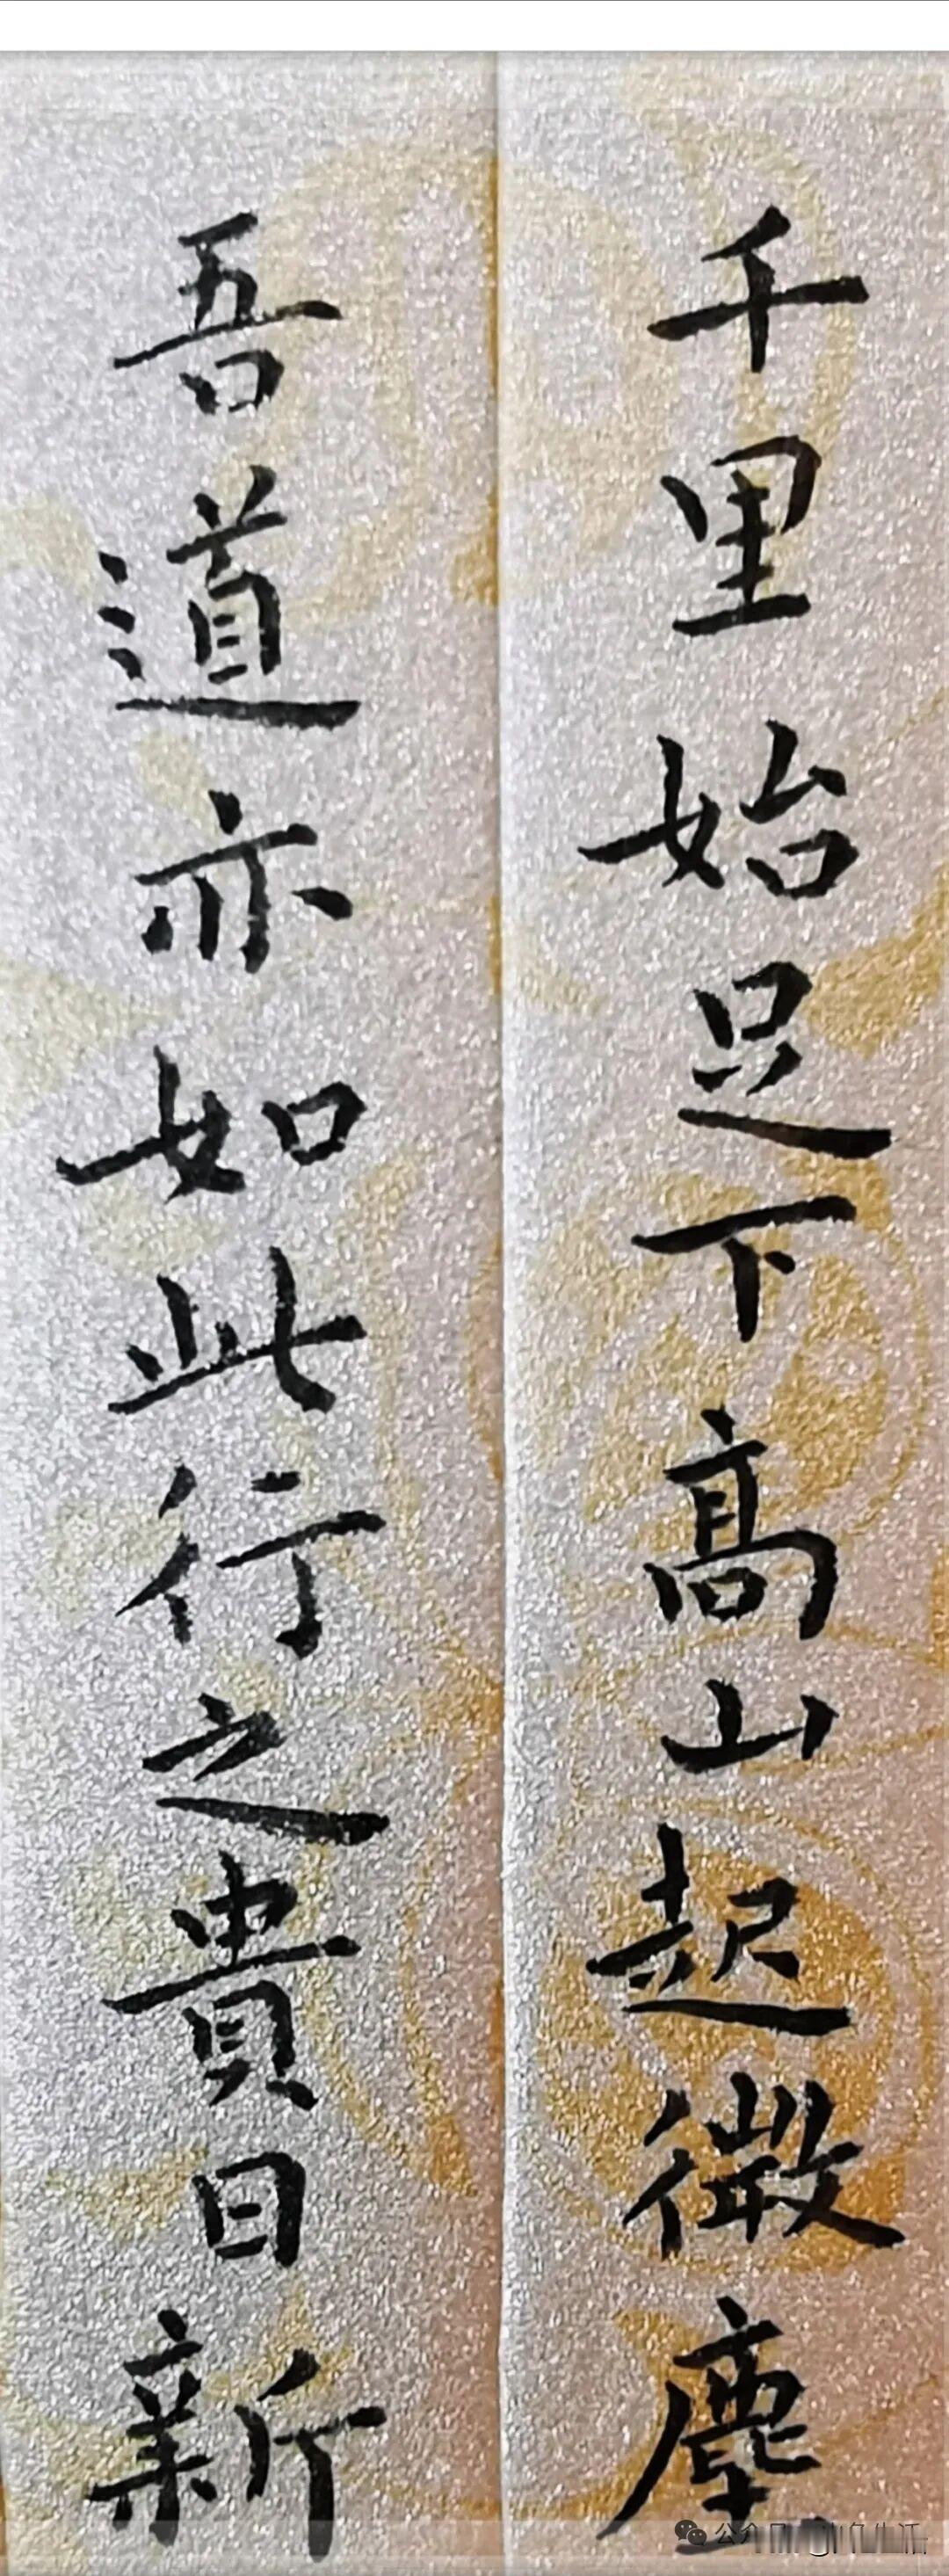 千里始足下高山起微塵
吾道亦如此行之貴日新
公众号